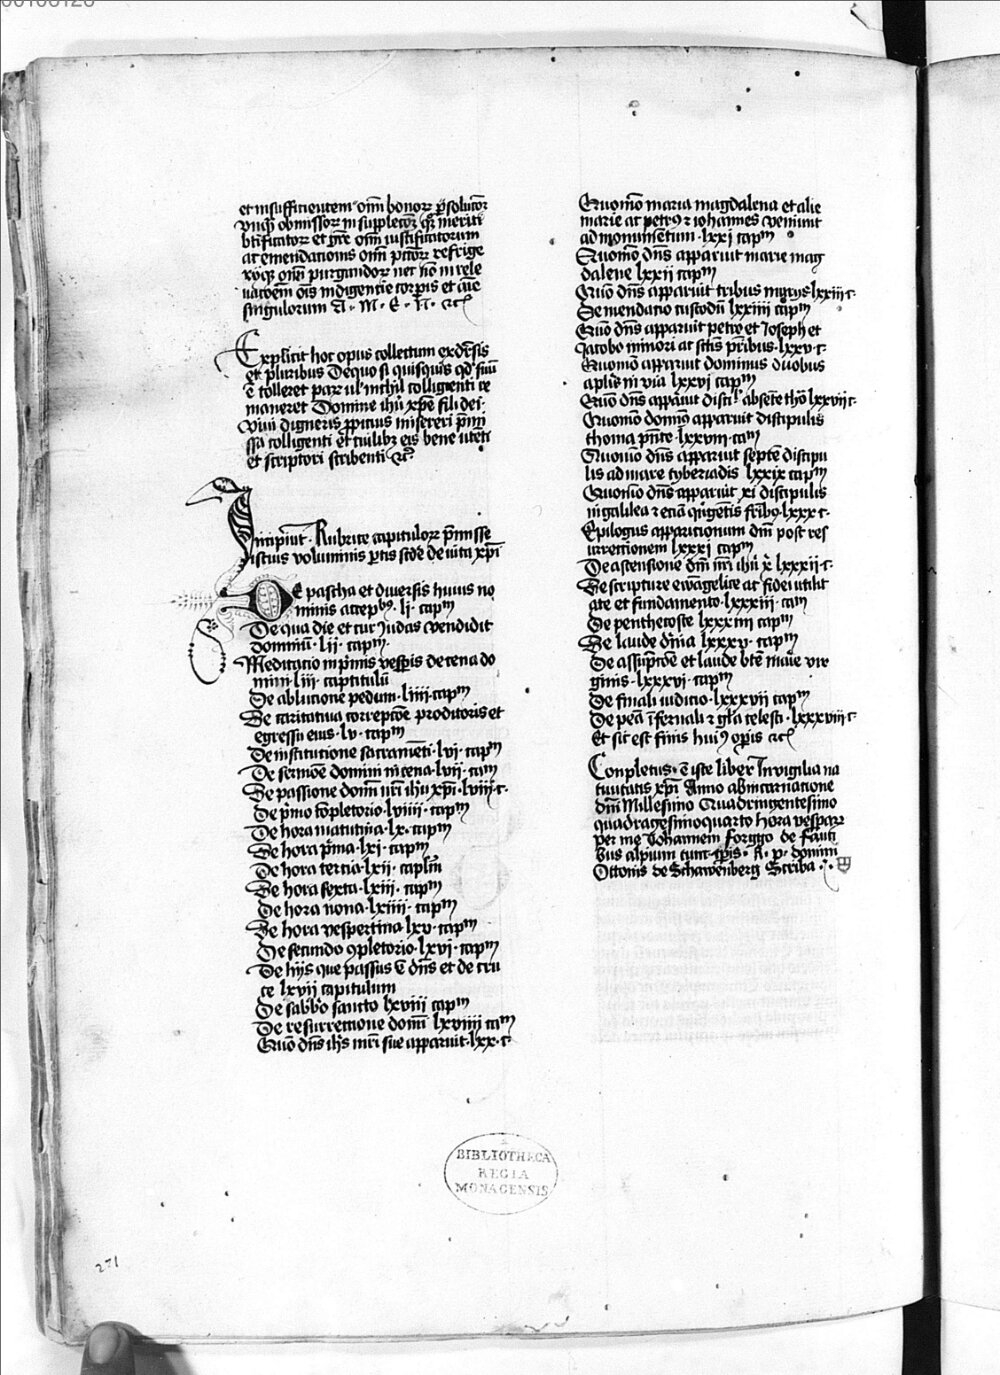 et insufficientem om̅ bonoꝝ ꝑsolucoꝝ
btificatoꝝ et gr̅e om̅ iustificatorum
ac emendationis om̅ pctoꝝ refrige
singulorum A · M · E · N · ⁊c̃
Explicit hoc opus collectum ex d̅r̅sis
et pluribus De quo si quisquis qd̕ suu̅
e̅ tolleret parꝝ ul̕ nichil colligenti re
maneret Domine ih̅u xp̅e fili dei
viui digneris ꝓpicius misereri p̅mi
ssa colligenti et cuilibꝫ eis bene ute̅ti
et scriptori scribenti ⁊c̃
Incipiu̅t Rubrice capituloꝝ p̅misse
istius voluminis ꝑtis sc̅de de uita xp̅i
De pascha et diuersis huius no
minis accep͏̅bꝰ · lj · capᵐ
De qua die et cur Iudas vendidit
dominu̅ · lij · capᵐ
Meditatio in p̅mis vesꝑis de cena do
mini · liii · capittulu̅
De ablucione pedum · liiii · capᵐ
De caritatiua correpco̅e proditoris et
egressu eius · lv · capᵐ
De institutione sacrame̅ti · lvi · capᵐ
De sermo̅e domini in cena · lvii · cam
De passione domi̅ nr̅i ih̅u xp̅i · lviii · c·
De p̅mo co̅pletorio · lviiii · capᵐ
De hora matutina · lx · capᵐ
De hora p̅ma · lxi · capᵐ
De hora tertia · lxii · caplm̅
De hora sexta · lxiii · capᵐ
De hora nona · lxiiii · capᵐ
De hora vespertina lxv · capᵐ
De secundo ꝯpletorio · lxvi · capᵐ
De hijs que passus e̅ dn̅s et de cru
ce lxvii capitulum
De sabb̅o sancto lxviii capᵐ
De resurrectione domi̅ lxviiii caᵐ
Quo̅ dn̅s ih̅s mr̅i sue apparuit · lxx · c·
Quomo̅ maria magdalena et alie
marie ac petrꝰ ⁊ iohannes veniunt
ad monumentum · lxxi capᵐ
Quomo̅ dn̅s apparuit marie mag
dalene lxxii capᵐ
Quo̅ dn̅s apparuit tribus marijs lxxiii c·
De mendacio custodu̅ lxxiiii capᵐ
Quo̅ dn̅s apparuit petro et Ioseph et
Jacobo minori ac sc̅tis pr̅ibus · lxxv · c·
Quomo̅ apparuit dominus duobus
aplis̅ in via lxxvi capᵐ
Quo̅ dn̅s apparuit discil̕ abse̅te tho̅ lxxvii c·
Quomo̅ domin̅ꝰ apparuit discipulis
thoma p̅nte · lxxviii · caᵐ
Quomo̅ dn̅s apparuit septe̅ discipu
lis ad mare tyberiadis lxxix capᵐ
Quomo̅ dn̅s apparuit xi discipulis
in galilea ⁊ ecia̅ qi̅ge̅tis fr̅ibꝰ · lxxx c·
Epilogus apparicionum dn̅i post res
urrectionem lxxxi capᵐ
De ascensione dn̅i nr̅i ih̅u x̅ lxxxii · c·
De scripture ewa̅gelice ac fidei utilit
ate et fundamento · lxxxiii · caᵐ
De penthecoste lxxxiiii capᵐ
De laude di̅uina lxxxv · capᵐ
De assu̅pco̅e et laude bt̅e ma̅ie vir
ginis · lxxxvi · capᵐ
De finali iudicio · lxxxvii capᵐ
De pe̅a i̅fernali ⁊ gl̅a celesti · lxxxviii c·
Et sic est finis huiꝰ oꝑis ⁊c̃
Conpletus e̅ iste liber In vigilia na
tiuitatis xp̅i Anno ab incarnatione
dn̅i Millesimo Quadringentesimo
quadragesimo quarto hora vesparꝝ
per me Johannem Forggo de Fauci
bus alpium tunc tp̅is · R · p · domini
Ottonis de Schawenberg Scriba ·
BIBLIOTHECA
REGIA
MONACENSIS
271